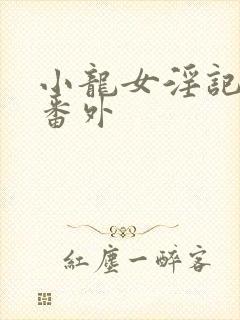 小龍女淫記
番外
紅塵一醉客